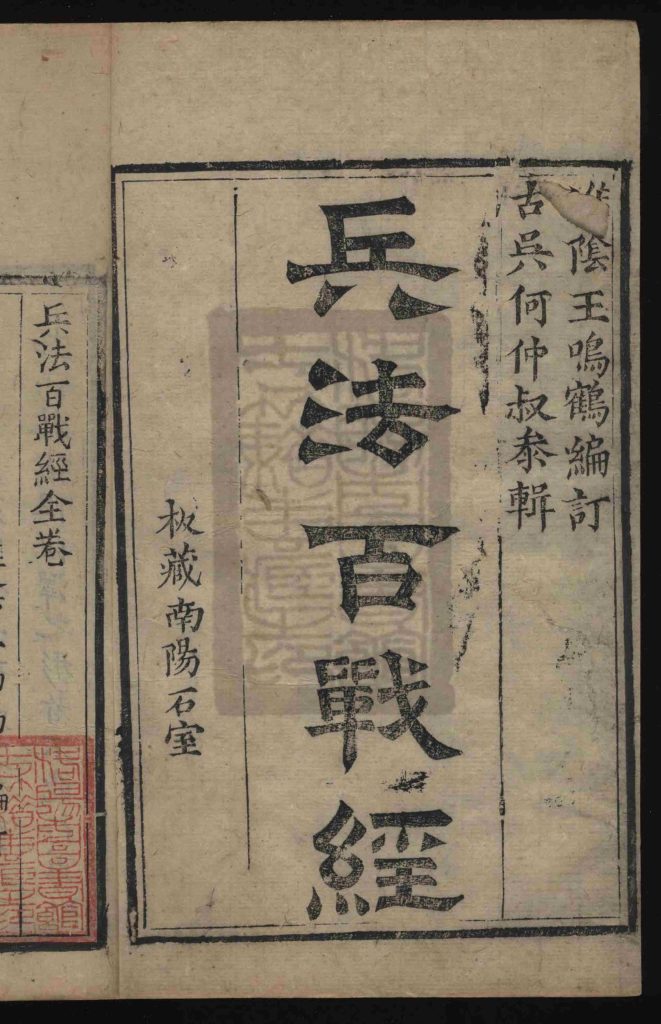 陰王鳴鶴編訂
古吳何仲叔叅輯
兵法百戰經
板藏南陽石室
兵法百戰經全卷